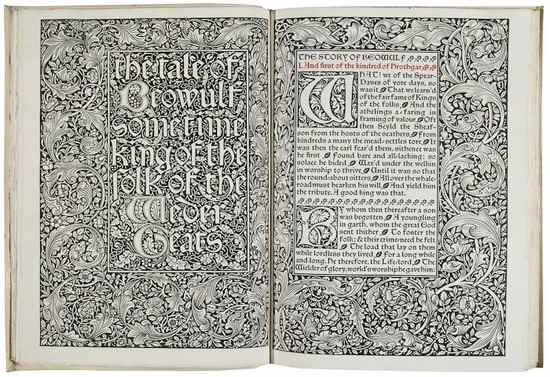 the tale of
Beowulf
sometime
king of the
folk of the
Weder
Geats
THE STORY OF BEOWULF
I. And first of the kindred of Hrothgar.
WHAT! we of the Spear-
Danes of yore days, so
was it That we learn'd
of the fair fame of kings
of the folks And the
athelings a-faring in
framing of valour. Oft
then Scyld the Sheaf-
son from the hosts of the scathers, From
kindreds a many the mead-settles tore;
It was then the earl fear'd them, sithence was
he first Found bare and all-lacking; so
solace he bided, Wax'd under the welkin
in worship to thrive, Until it was so that
the round-about sitters All over the whale-
road must hearken his will And yield him
the tribute. A good king was that.
By whom then thereafter a son
was begotten, A youngling
in garth, whom the great God
sent thither To foster the
folk; & their crime-need he felt
The load that lay on them
while lordless they lived For a long while
and long. He therefore, the Life-lord, The
Wielder of glory, world's worship he gave him: